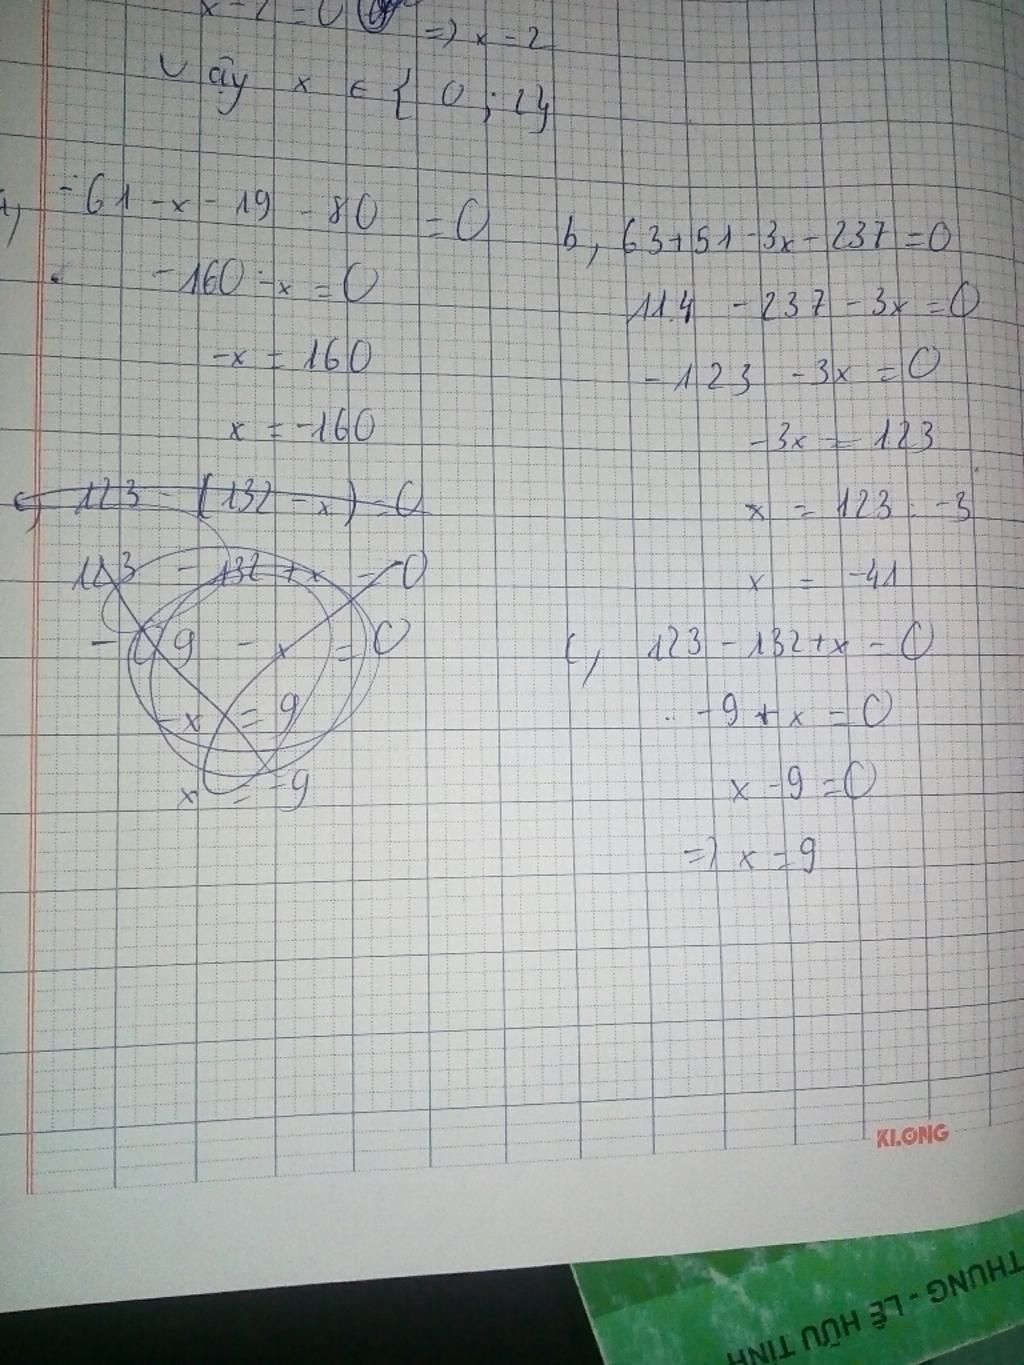 x - 2 = 0 => x = 2
Vậy x ∈ { 0 ; 2 }
a, -61 - x - 19 - 80 = 0
-160 - x = 0
-x = 160
x = -160
c, 123 - (132 - x) = 0
123 - 132 + x = 0
- 9 - x = 0
-x = 9
x = -9
b, 63 + 51 - 3x - 237 = 0
114 - 237 - 3x = 0
-123 - 3x = 0
-3x = 123
x = 123 : -3
x = -41
c, 123 - 132 + x = 0
-9 + x = 0
x - 9 = 0
=> x = 9
KLONG
THUNG - LÊ HỮU TỈNH